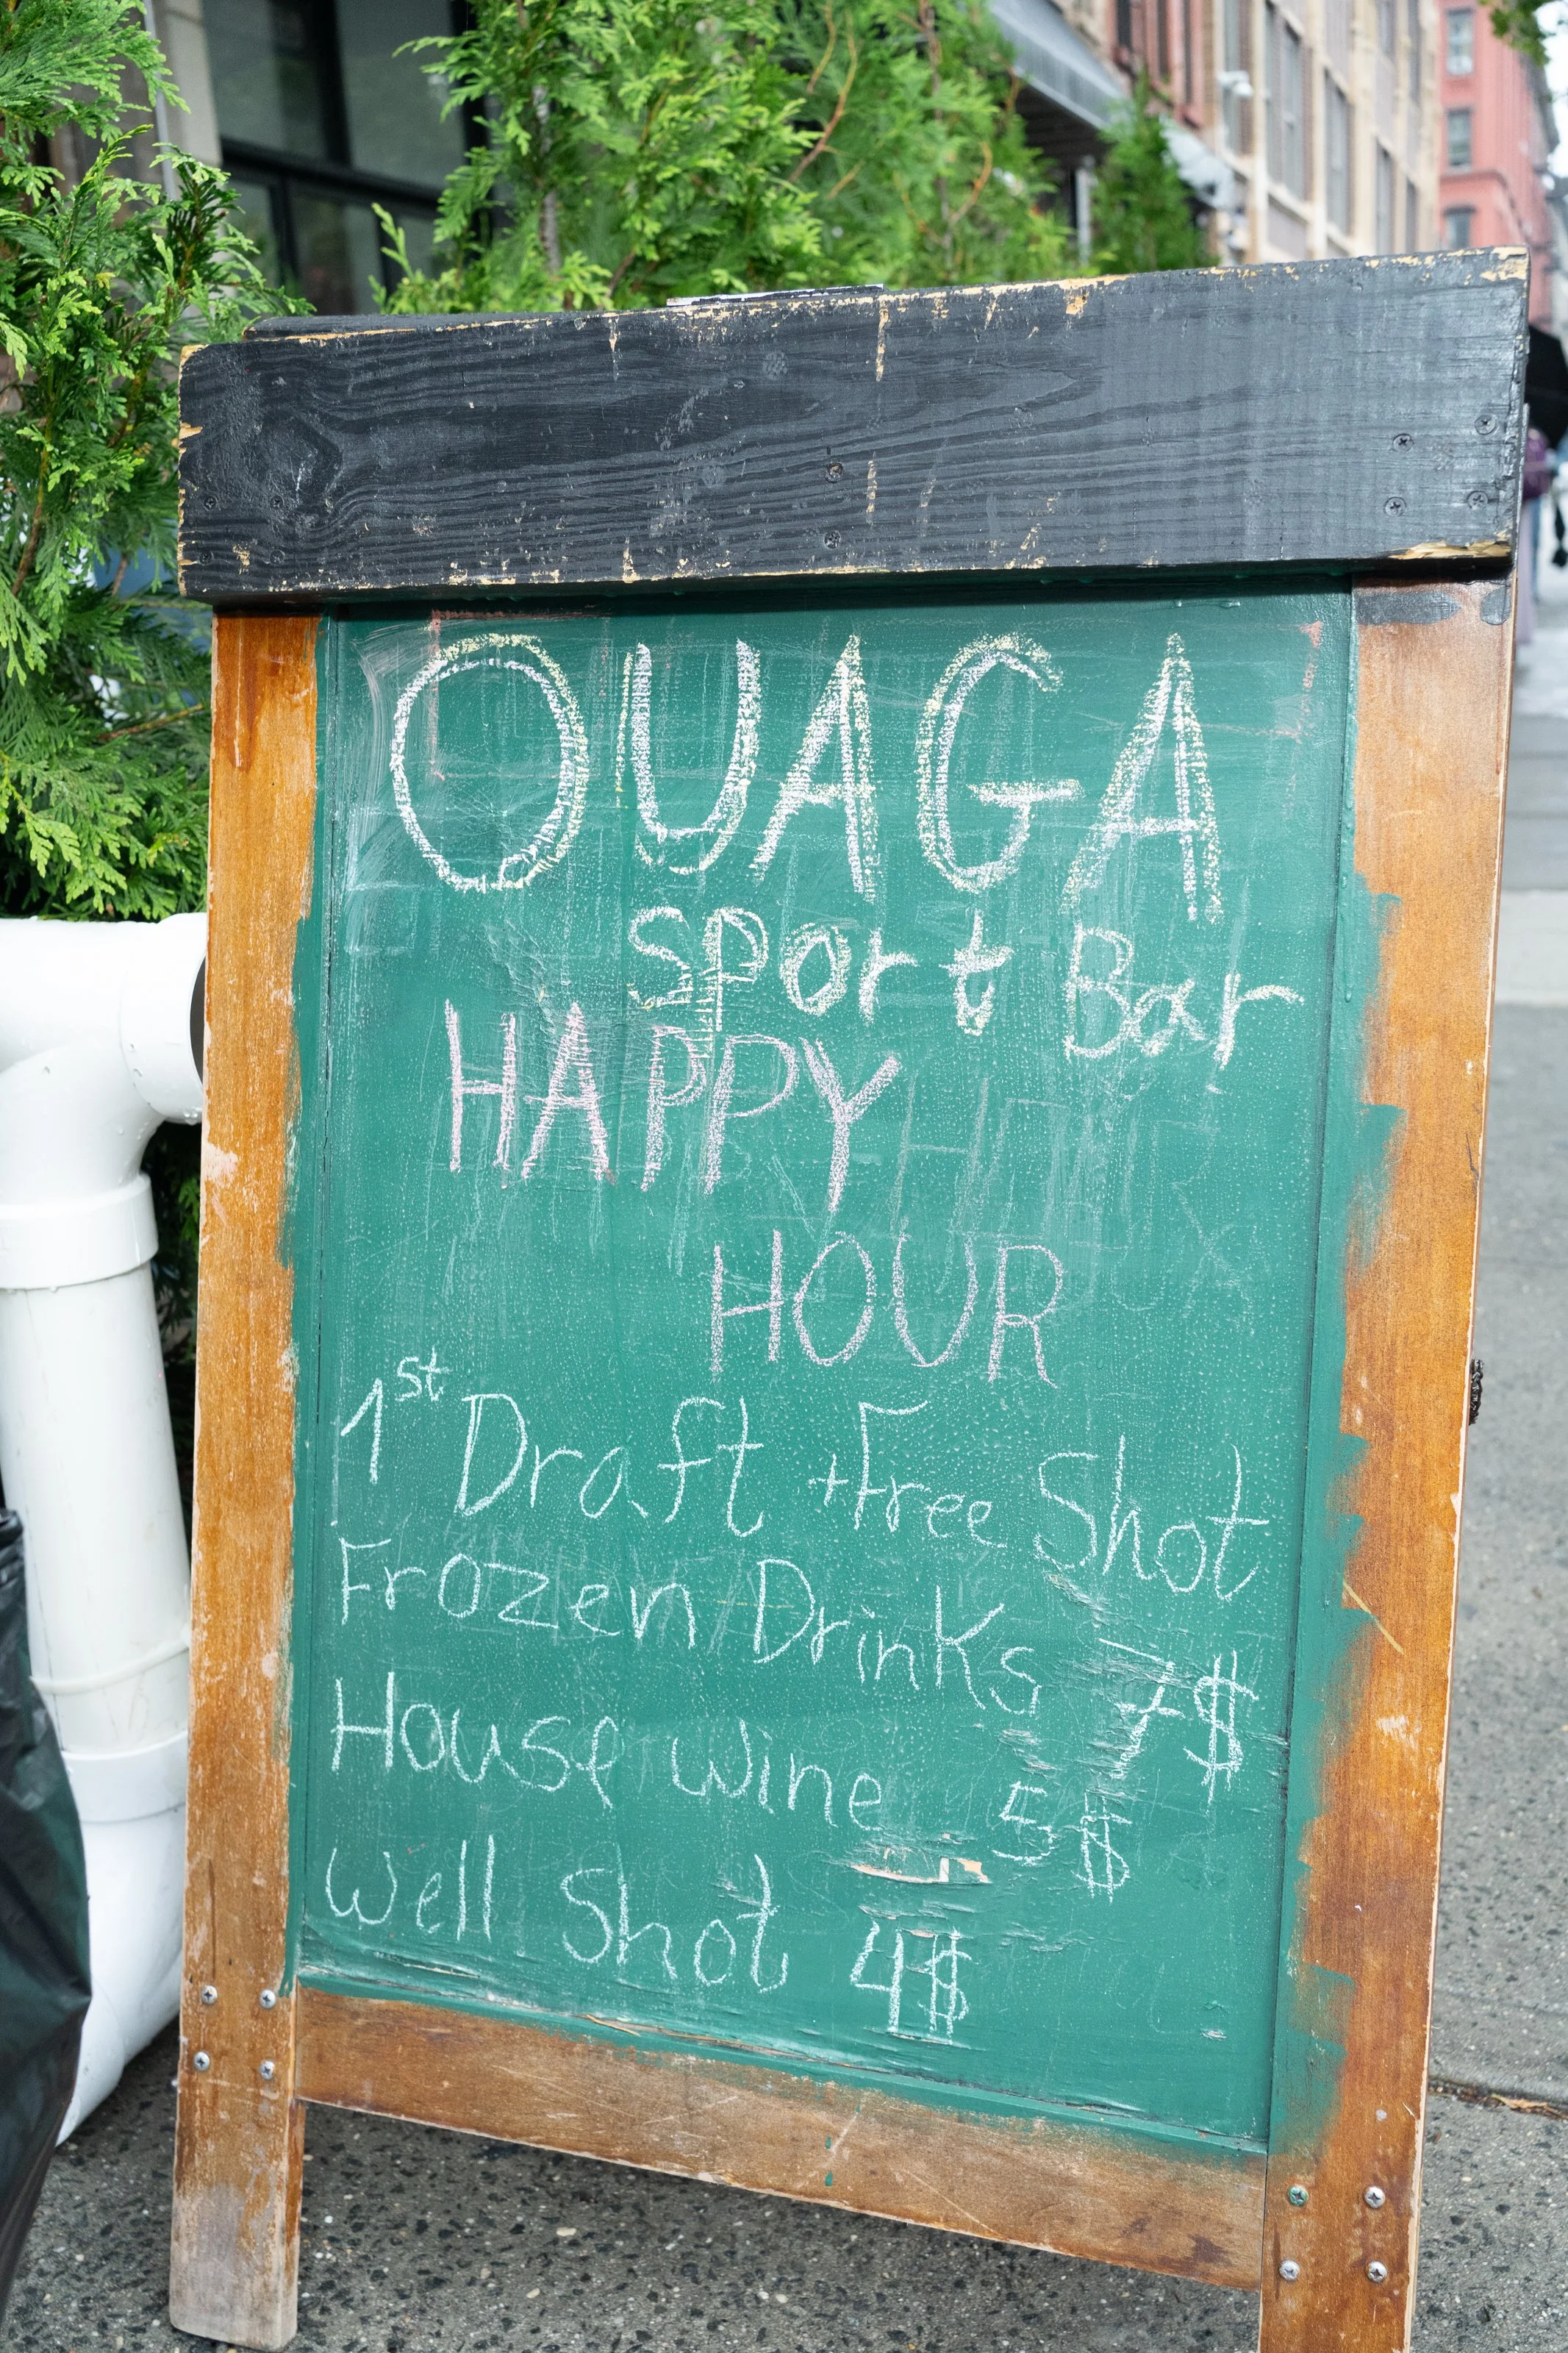 OUAGA
Sport Bar
HAPPY
HOUR
1st Draft +Free Shot
Frozen Drinks 7$
House wine 5$
Well Shot 4$